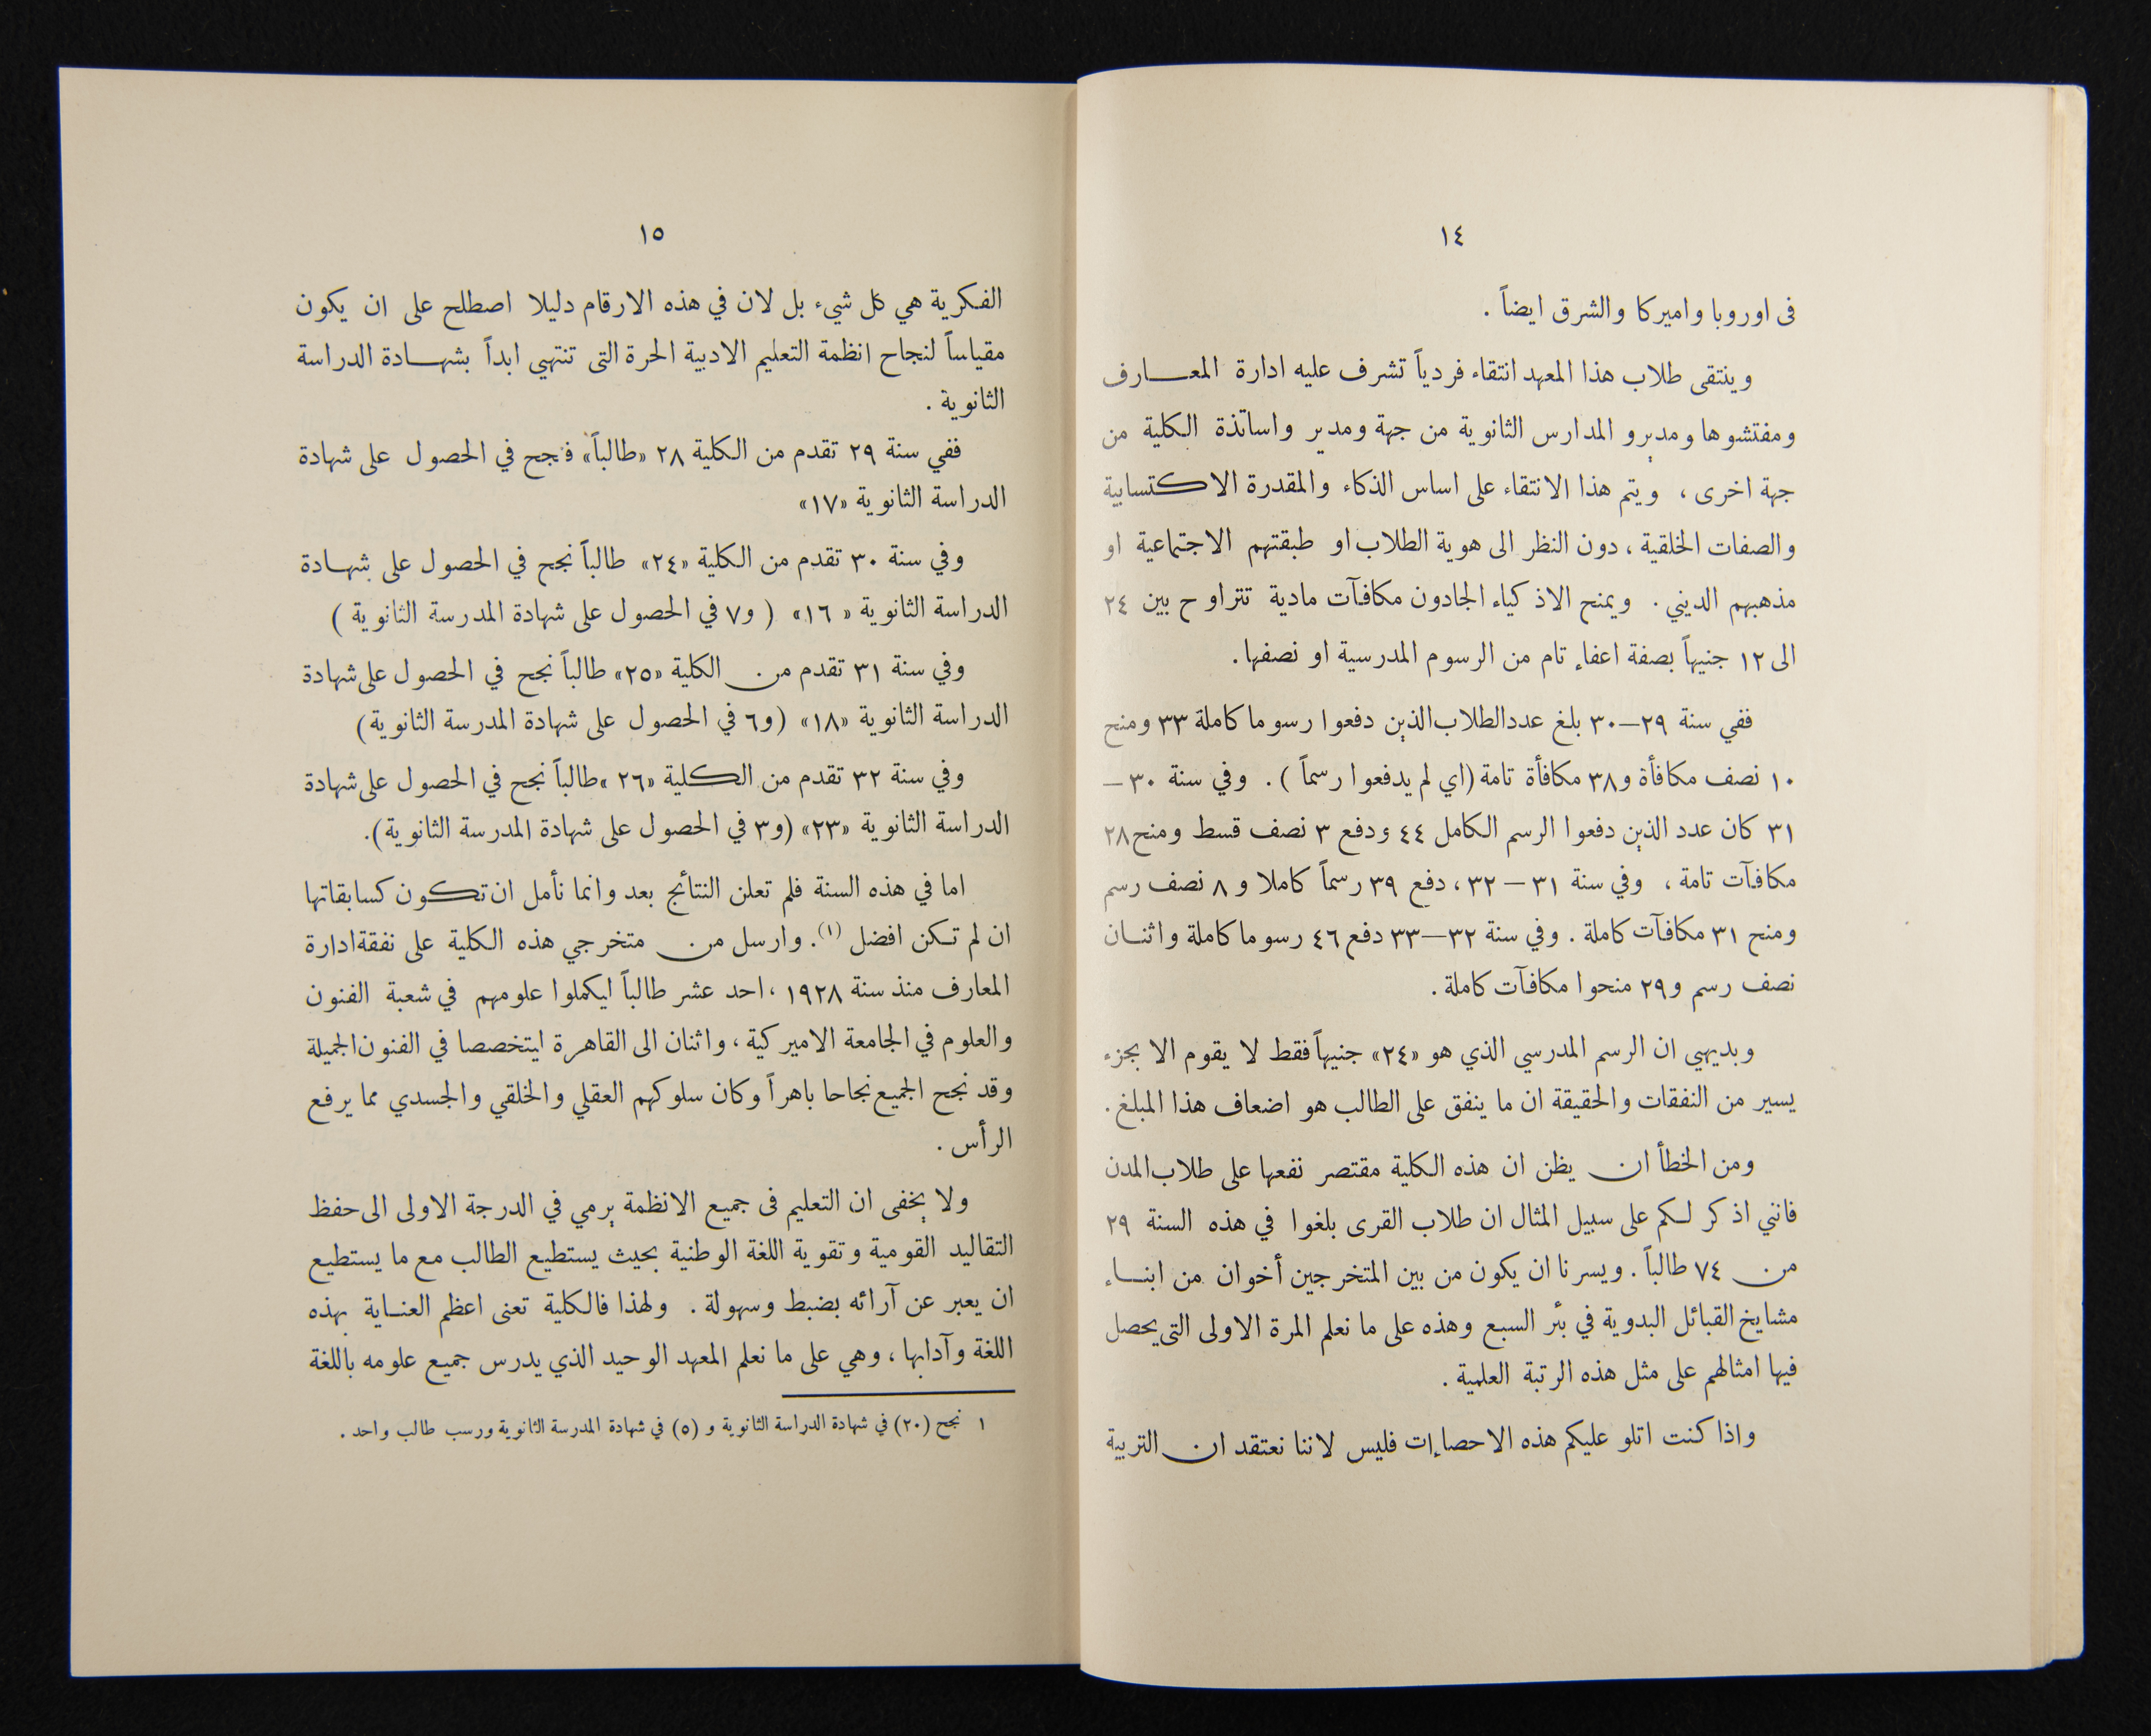 ١٤
فى اوروبا واميركا والشرق ايضاً .
وينتقى طلاب هذا المعهد انتقاء فردياً تشرف عليه ادارة المعـارف
ومفتشوها ومديرو المدارس الثانوية من جهة ومدير واساتذة الكلية من
جهة اخرى ، ويتم هذا الانتقاء على اساس الذكاء والمقدرة الاكتسابية
والصفات الخلقية ، دون النظر الى هوية الطلاب او طبقتهم الاجتماعية او
مذهبهم الديني . ويمنح الاذكياء الجادون مكافآت مادية تتراوح بين ٢٤
الى ١٢ جنيهاً بصفة اعفاء تام من الرسوم المدرسية او نصفها .
ففي سنة ٢٩—٣٠ بلغ عدد الطلاب الذين دفعوا رسوما كاملة ٣٣ ومنح
١٠ نصف مكافأة و٣٨ مكافأة تامة (اي لم يدفعوا رسماً ) . وفي سنة ٣٠—
٣١ كان عدد الذين دفعوا الرسم الكامل ٤٤ ودفع ٣ نصف قسط ومنح ٢٨
مكافآت تامة ، وفي سنة ٣١ — ٣٢ ، دفع ٣٩ رسماً كاملا و ٨ نصف رسم
ومنح ٣١ مكافآت كاملة . وفي سنة ٣٢—٣٣ دفع ٤٦ رسوما كاملة واثنـان
نصف رسم و٢٩ منحوا مكافآت كاملة .
وبديهي ان الرسم المدرسي الذي هو «٢٤» جنيهاً فقط لا يقوم الا بجزء
يسير من النفقات والحقيقة ان ما ينفق على الطالب هو اضعاف هذا المبلغ .
ومن الخطأ ان يظن ان هذه الكلية مقتصر نفعها على طلاب المدن
فانني اذكر لكم على سبيل المثال ان طلاب القرى بلغوا في هذه السنة ٢٩
من ٧٤ طالباً . ويسرنا ان يكون من بين المتخرجين أخوان من ابنـاء
مشايخ القبائل البدوية في بئر السبع وهذه على ما نعلم المرة الاولى التى يحصل
فيها امثالهم على مثل هذه الرتبة العلمية .
واذا كنت اتلو عليكم هذه الاحصاءات فليس لاننا نعتقد ان التربية
١٥
الفكرية هي كل شيء بل لان في هذه الارقام دليلا اصطلح على ان يكون
مقياساً لنجاح انظمة التعليم الادبية الحرة التى تنتهي ابداً بشهـادة الدراسة
الثانوية .
ففي سنة ٢٩ تقدم من الكلية ٢٨ «طالباً» فنجح في الحصول على شهادة
الدراسة الثانوية «١٧»
وفي سنة ٣٠ تقدم من الكلية «٢٤» طالباً نجح في الحصول على شهـادة
الدراسة الثانوية « ١٦» ( و٧ في الحصول على شهادة المدرسة الثانوية )
وفي سنة ٣١ تقدم من الكلية «٢٥» طالباً نجح في الحصول على شهادة
الدراسة الثانوية «١٨» (و٦ في الحصول على شهادة المدرسة الثانوية)
وفي سنة ٣٢ تقدم من الكلية «٢٦» طالباً نجح في الحصول على شهادة
الدراسة الثانوية «٢٣» (و٣ في الحصول على شهادة المدرسة الثانوية).
اما في هذه السنة فلم تعلن النتائج بعد وانما نأمل ان تكون كسابقاتها
ان لم تكن افضل (١). وارسل من متخرجي هذه الكلية على نفقة ادارة
المعارف منذ سنة ١٩٢٨ ، احد عشر طالباً ليكملوا علومهم في شعبة الفنون
والعلوم في الجامعة الاميركية ، واثنان الى القاهرة ليتخصصا في الفنون الجميلة
وقد نجح الجميع نجاحا باهراً وكان سلوكهم العقلي والخلقي والجسدي مما يرفع
الرأس .
ولا يخفى ان التعليم فى جميع الانظمة يرمي في الدرجة الاولى الى حفظ
التقاليد القومية وتقوية اللغة الوطنية بحيث يستطيع الطالب مع ما يستطيع
ان يعبر عن آرائه بضبط وسهولة . ولهذا فالكلية تعنى اعظم العنـاية بهذه
اللغة وآدابها ، وهي على ما نعلم المعهد الوحيد الذي يدرس جميع علومه باللغة
١ نجح (٢٠) في شهادة الدراسة الثانوية و (٥) في شهادة المدرسة الثانوية ورسب طالب واحد .